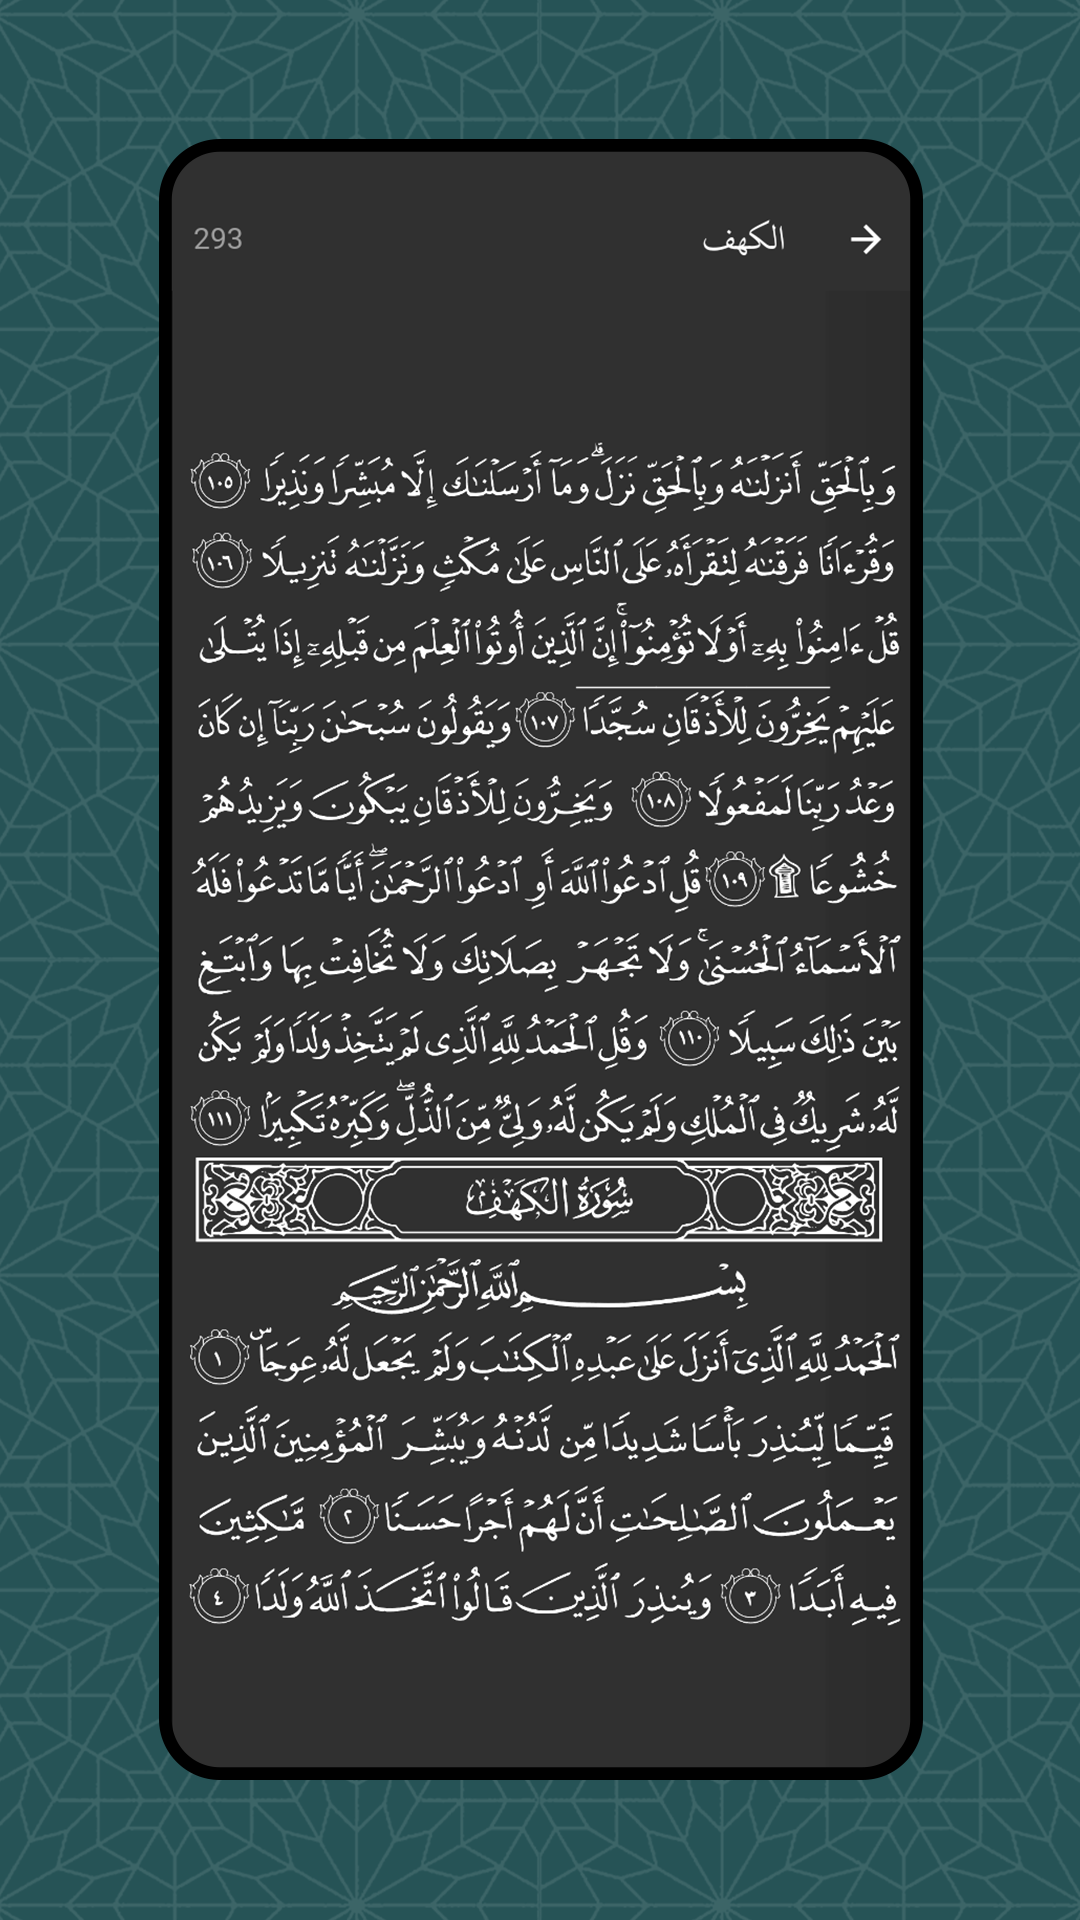 293
الكهف
وَبِٱلۡحَقِّ أَنزَلۡنَٰهُ وَبِٱلۡحَقِّ نَزَلَۗ وَمَآ أَرۡسَلۡنَٰكَ إِلَّا مُبَشِّرٗا وَنَذِيرٗا ١٠٥
وَقُرۡءَانٗا فَرَقۡنَٰهُ لِتَقۡرَأَهُۥ عَلَى ٱلنَّاسِ عَلَىٰ مُكۡثٖ وَنَزَّلۡنَٰهُ تَنزِيلٗا ١٠٦
قُلۡ ءَامِنُواْ بِهِۦٓ أَوۡ لَا تُؤۡمِنُوٓاْۚ إِنَّ ٱلَّذِينَ أُوتُواْ ٱلۡعِلۡمَ مِن قَبۡلِهِۦٓ إِذَا يُتۡلَىٰ
عَلَيۡهِمۡ يَخِرُّونَ لِلۡأَذۡقَانِۤ سُجَّدٗاۤ ١٠٧ وَيَقُولُونَ سُبۡحَٰنَ رَبِّنَآ إِن كَانَ
وَعۡدُ رَبِّنَا لَمَفۡعُولٗا ١٠٨ وَيَخِرُّونَ لِلۡأَذۡقَانِ يَبۡكُونَ وَيَزِيدُهُمۡ
خُشُوعٗا ۩ ١٠٩ قُلِ ٱدۡعُواْ ٱللَّهَ أَوِ ٱدۡعُواْ ٱلرَّحۡمَٰنَۖ أَيّٗا مَّا تَدۡعُواْ فَلَهُ
ٱلۡأَسۡمَآءُ ٱلۡحُسۡنَىٰۚ وَلَا تَجۡهَرۡ بِصَلَاتِكَ وَلَا تُخَافِتۡ بِهَا وَٱبۡتَغِ
بَيۡنَ ذَٰلِكَ سَبِيلٗا ١١٠ وَقُلِ ٱلۡحَمۡدُ لِلَّهِ ٱلَّذِي لَمۡ يَتَّخِذۡ وَلَدٗا وَلَمۡ يَكُن
لَّهُۥ شَرِيكٞ فِي ٱلۡمُلۡكِ وَلَمۡ يَكُن لَّهُۥ وَلِيّٞ مِّنَ ٱلذُّلِّۖ وَكَبِّرۡهُ تَكۡبِيرَۢا ١١١
سُورَةُ الكَهۡفِ
بِسۡمِ ٱللَّهِ ٱلرَّحۡمَٰنِ ٱلرَّحِيمِ
ٱلۡحَمۡدُ لِلَّهِ ٱلَّذِيٓ أَنزَلَ عَلَىٰ عَبۡدِهِ ٱلۡكِتَٰبَ وَلَمۡ يَجۡعَل لَّهُۥ عِوَجَاۜ ١
قَيِّمٗا لِّيُنذِرَ بَأۡسٗا شَدِيدٗا مِّن لَّدُنۡهُ وَيُبَشِّرَ ٱلۡمُؤۡمِنِينَ ٱلَّذِينَ
يَعۡمَلُونَ ٱلصَّٰلِحَٰتِ أَنَّ لَهُمۡ أَجۡرًا حَسَنٗا ٢ مَّٰكِثِينَ
فِيهِ أَبَدٗا ٣ وَيُنذِرَ ٱلَّذِينَ قَالُواْ ٱتَّخَذَ ٱللَّهُ وَلَدٗا ٤